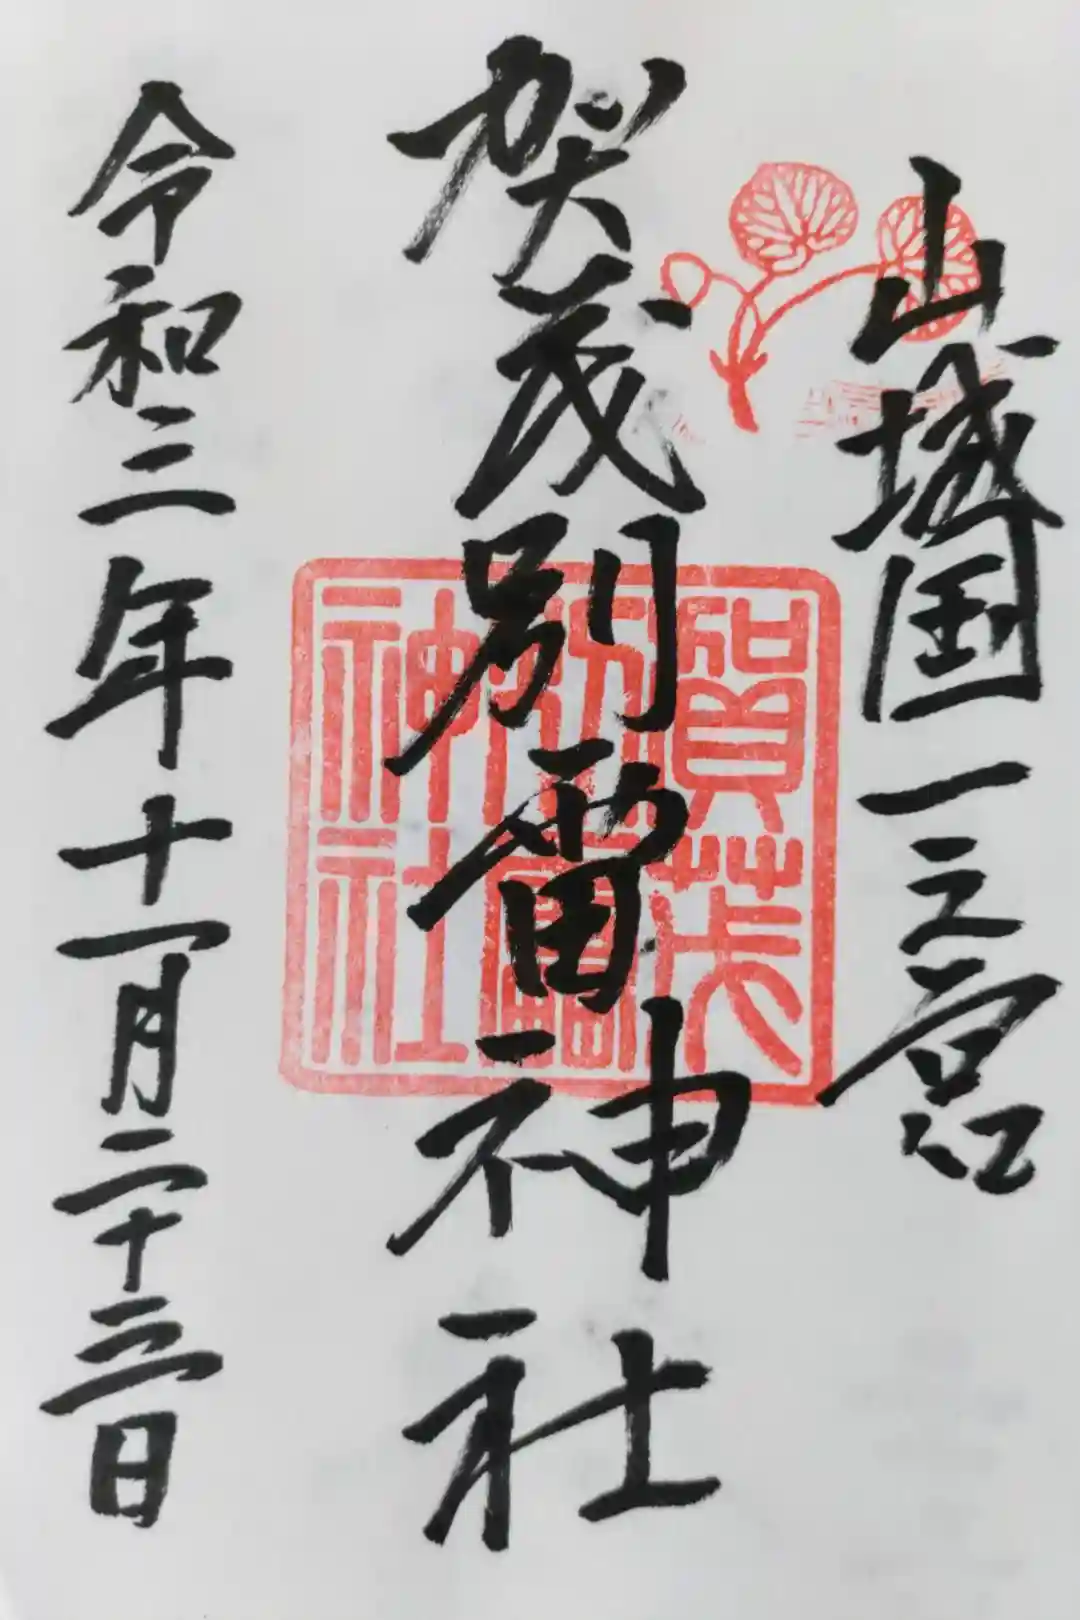 山城国一之宮
賀茂別雷神社
賀茂
別雷
神社
令和三年十一月二十三日